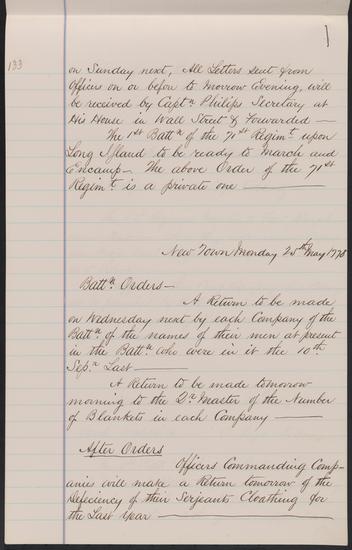 133
on Sunday next, All Letters Sent from
Officers on or before to Morrow Evening, will
be received by Captn Philips Secretary at
His House in Wall Street & Forwarded —
The 1st Battn of the 71st Regimt upon
Long Island to be ready to March and
Encamp — The above Order of the 71st
Regimt is a private one —
New Town Monday 25th May 1778
Battn Orders —
A Return to be made
on Wednesday next by each Company of the
Battn of the names of their men at present
in the Battn who were in it the 10th
Sepr Last —
A Return to be made tomorrow
morning to the Qr Master of the Number
of Blankets in each Company —
After Orders
Officers Commanding Comp-
anies will make a Return tomorrow of the
Deficiency of their Serjeants Cloathing for
the Last Year —